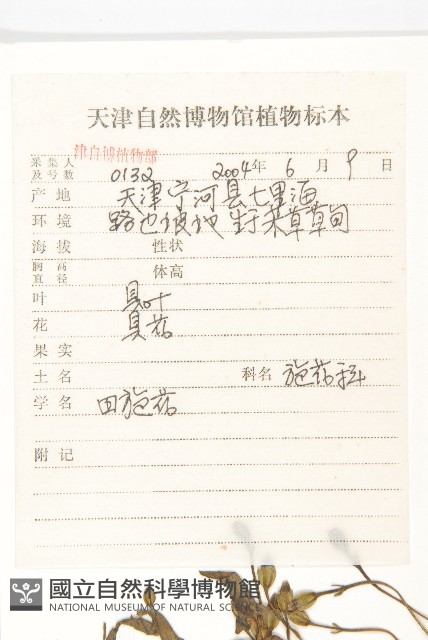 天津自然博物馆植物标本
津自博植物部
采集人
及号数 0132 2004年 6 月 9 日
产地 天津宁河县七里海
环境 路边坡地 生于杂草草甸
海拔 性状
胸高
直径 体高
叶 具叶
花 具花
果实
土名 科名 旋花科
学名 田旋花
附记
國立自然科學博物館
NATIONAL MUSEUM OF NATURAL SCIENCE